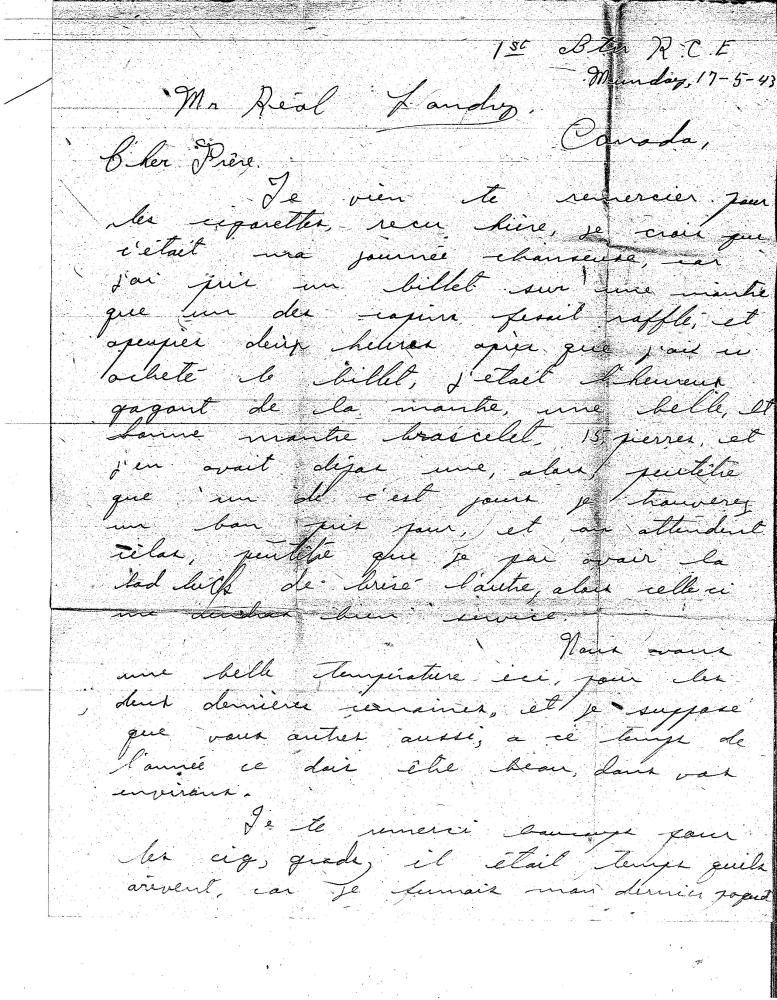 1st Btn R.C.E
Munday, 17-5-43
Mr Réal Landry.
Canada,
Cher Frère.
Je vien te remercier pour
les cigarettes, recu hière, je crois que
c'était ma journée chanseuse, car
j'ai pris un billet sur une montre
que un des copins fesait raffle, et
apeuprès deux heures après que j'ais u
acheté le billet, j'était l'heureux
gagant de la montre, une belle, et
bonne montre brascelet, 15 pierres, et
j'en avait déjas une, alors, peutêtre
que un de c'est jours je trouverez
un bon prix pour, et en attendent
celas, peutêtre que je par avoir la
bad luck de brisé l'autre, alors celle ci
me bien service.
Nous avons
une belle température ici, pour les
deux dernières semaines, et je suppose
que vous autres aussi, a ce temps de
l'année ce dois être beau, dans vos
environs.
Je te remerci beaucoups pour
les cig, grads, il était temps quils
arivent, car je fumais mon dernier paquet